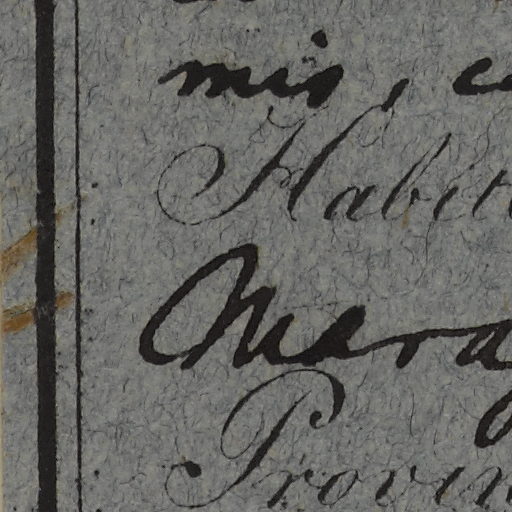 mis, c
Habit
Mara
Provin